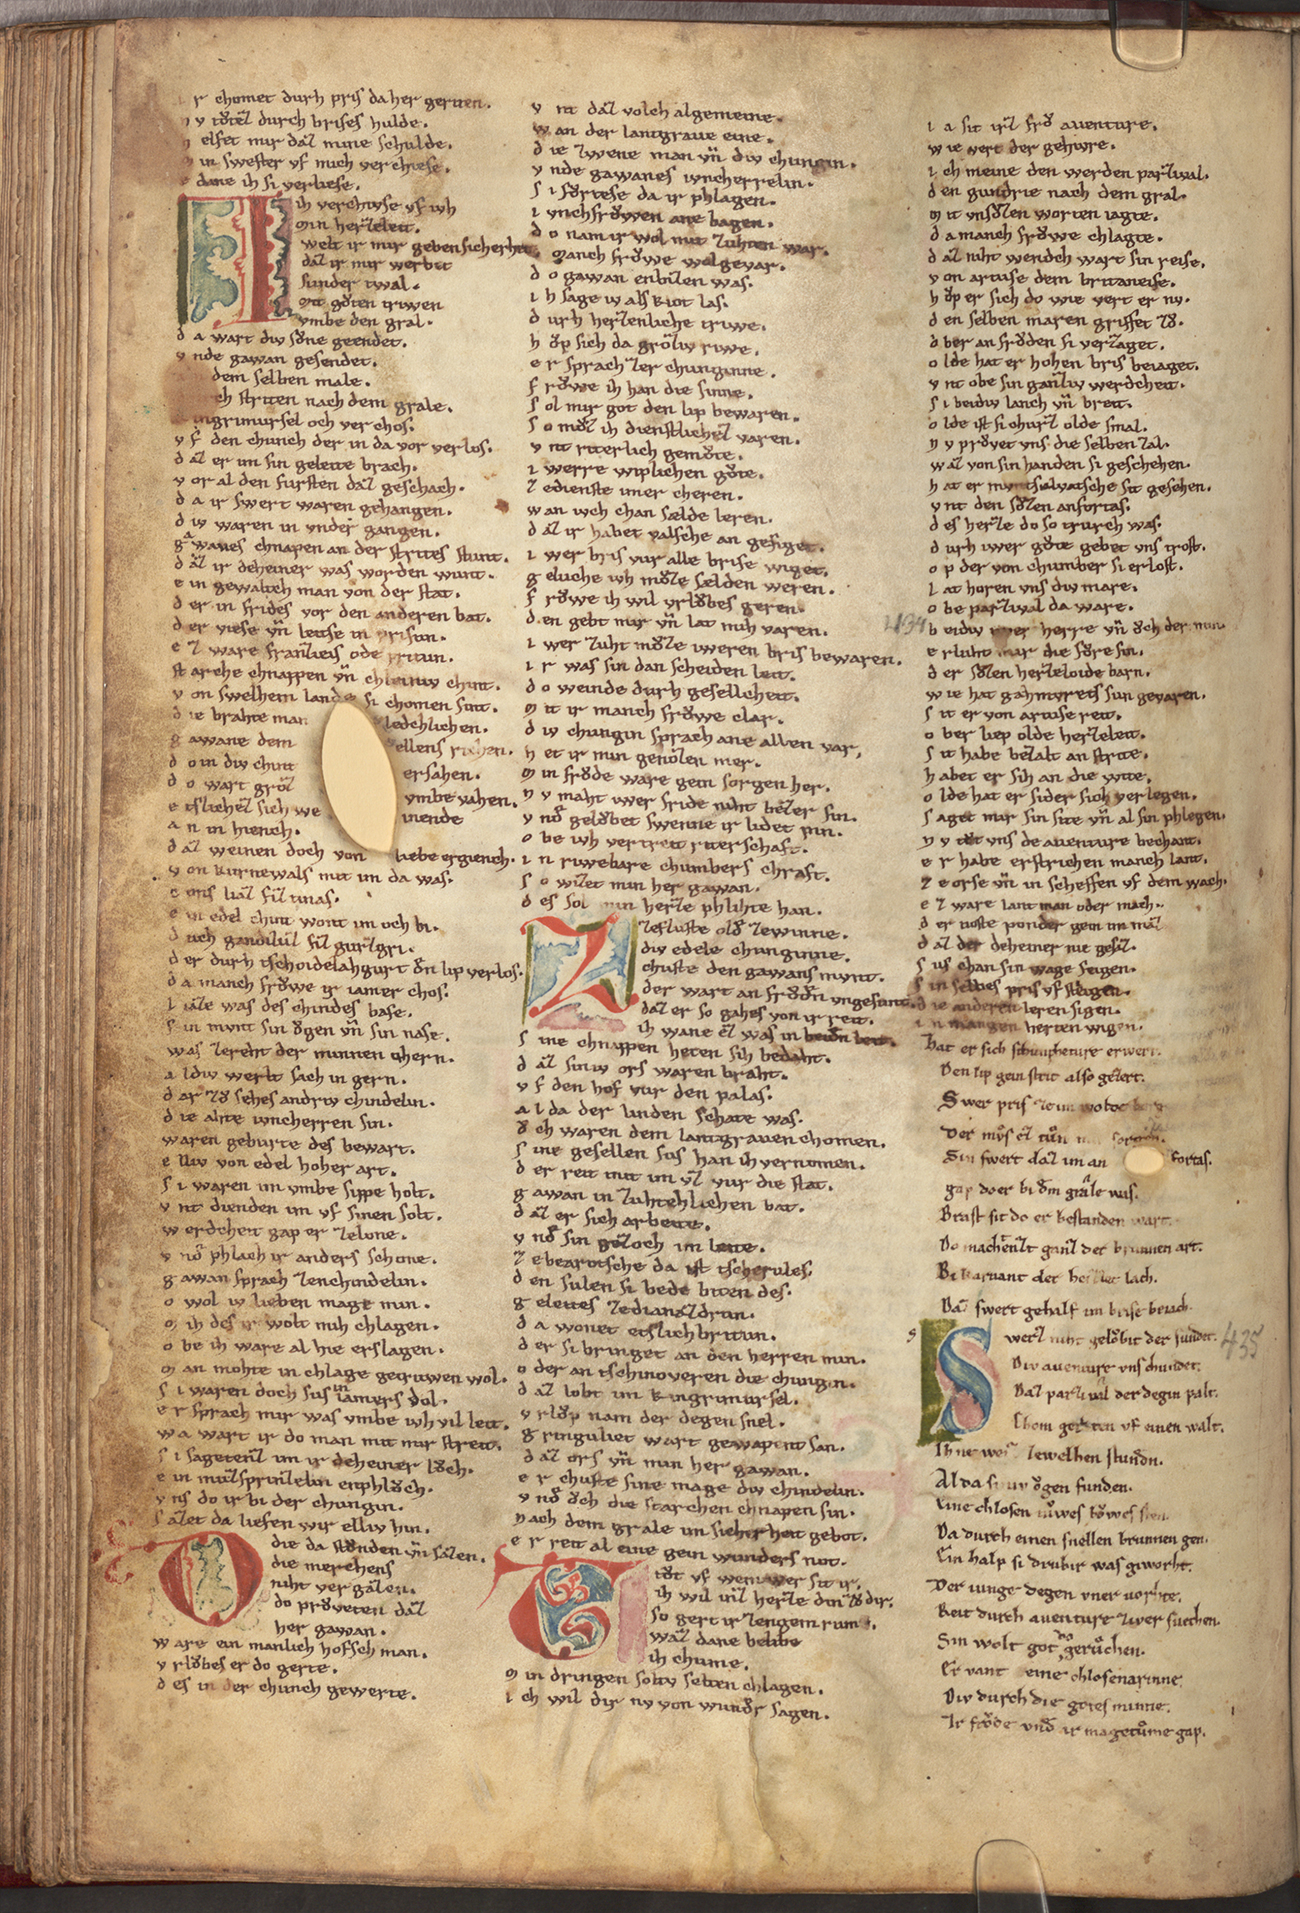 r chomet durh pris da her geriten.
v tötet durch brises hulde.
elfet mir daz mine schulde.
in swester vf mich verchiese.
e dane ih si verliese.
ih verchiuse vf iwh
min herzeleit.
welt ir mir geben sicherheit.
daz ir mir werbit
sunder twal.
mit gůten triwen
vmbe den gral.
d a wart div sůne geendet.
v nde gawan gesendet.
dem selben male.
ch striten nach dem grale.
ingrimursel och verchos.
v f den chunch der in da vor verlos.
d az er im sin geleite brach.
v or al den fursten daz geschach.
d a ir swert waren gehangen.
d iv waren in vnder gangen.
g awanes chnapen an der strites stunt.
d az ir deheiner was worden wunt.
e in gewaltch man von der stat.
d er in frides vor den anderen bat.
d er viese vn̄ leitse in prisun.
e z ware franzeis ode pritun.
starche chnappen vn̄ chleiniv chint.
v on swelhem lande si chomen sint.
d ie brahte man ledechlichen.
g awane dem ellens richen.
d o in div chint ersahen.
d o wart groz vmbe vahen.
e tslichez sich we inende
a n in hiench.
d az weinen doch von liebe ergiench.
v on kurnewals mit im da was.
c ons liaz fiz tinas.
e in edel chint wont im och bi.
d uch gandiluz fiz gurzgri.
d er durh tschoidelahgurt dn̄ lip verlos.
d a manch frŏwe ir iamer chos.
l iaze was des chindes base.
s in munt sin ŏgen vn̄ sin nase.
was zereht der minnen chern.
a l div werlt sach in gern.
d ar zů sehes andriv chindelin.
d ie ahte iuncherren sin.
waren geburte des bewart.
e lliv von edel hoher art.
s i waren im vmbe sippe holt.
v nt dienden im vf sinen solt.
w erdcheit gap er zelone.
v nd̄ phlach ir anders schone.
g awan sprach zenchindelin.
o wol iv lieben mage min.
m ih des ir wolt mih chlagen.
o be ih ware al hie erslagen.
m an mohte in chlage getruwen wol.
s i waren doch sus in iamers dol.
e r sprach mir was vmbe iwh vil leit.
w a wart ir do man mit mir streit.
s i sagetenz im ir deheiner lŏch.
e in muzsprinzelin enphlŏch.
v ns do ir bi der chungin.
s azet da liefen wir elliv hin.
die da stůnden vn̄ sazen.
die merchens
niht vergazen.
do průveten daz
her gawan.
w are ein manlich hofsch man.
v rlŏbes er do gerte.
d es in der chunch gewerte.
v nt daz volch algemeine.
w an der lantgraue eine.
d ie zwene man vn̄ div chungin.
v nde gawanes iuncherrelin.
s i fůrtese da ir phlagen.
i unchfrŏwen ane bagen.
d o nam ir wol mit zuhten war.
manch frŏwe wolgevar.
d o gawan enbizen was.
i h sage iv als kiot las.
d urh herzenliche triwe.
h ůp sich da groziv riwe.
e r sprach zer chunginne.
f rŏwe ih han die sinne.
s ol mir got den lip bewaren.
s o můz ih dienstlichez varen.
v nt riterlich gemůte.
i werre wiplichen gůte.
z edienste imer cheren.
w an iwch chan sælde leren.
d az ir habet valsche an gesiget.
i wer bris vur alle brise wiget.
g eluche iwh můze sælden weren.
f rŏwe ih wil vrlŏbes geren.
d en gebt mir vn̄ lat mih varen.
i wer zuht můze iweren bris bewaren.
i r was sin dan scheiden leit.
d o weinde durh gesellcheit.
m it ir manch frŏwe clar.
d iv chungin sprach ane allen var,
h et ir min genozen mer.
m in frŏde ware gein sorgen her.
n v maht iwer fride niht bezer sin.
v nd̄ gelŏbet swenne ir lidet pin.
o be iwh vertreit riterschaft.
i n riwebare chumbers chraft.
s o wizet min her gawan.
d es sol min herze phlihte han.
zeflust old̄ zewinne.
div edele chunginne.
chuste den gawans munt.
der wart an frŏdn̄ vngesunt.
daz er so gahes von ir reit.
ih wane ez was in beidn̄ leit.
s ine chnappen heten sih bedaht.
d az siniv ors waren braht.
v f den hof vur den palas.
a l da der linden schate was.
ŏ ch waren dem lantgrauen chomen.
s ine gesellen sus han ih vernomen.
d er reit mit im vz vur die stat.
g awan in zuhtehlichen bat.
d az er sich arbeite.
v nd̄ sin gezoch im leite.
z ebearotsche da ist tscherules.
d en sulen si bede biten des.
g eleites zedianazdrun.
d a wonet etslich britun.
d er si bringet an den herren min.
o der an tschinoveren die chungin.
d az lobt im kingrimursel.
v rlŏp nam der degen snel.
g ringuliet wart gewapent san.
d az ors vn̄ min her gawan.
e r chuste sine mage div chindelin.
v nd̄ ŏch die starchen chnapen sin.
n ach dem grale im sicherheit gebot.
e r reit al eine gein wunders not.
tůt vf wem wer sit ir.
ih wil inz herze din zů dir.
so gert ir zengem rume.
waz dane belibe
ih chume.
m in dringen soltv selten chlagen.
i ch wil dir nv von wund̄r sagen.
i a sit irz frŏ auenture.
w ie vert der gehiure.
i ch meine den werden parzival.
d en gundrie nach dem gral.
m it vnsůzen worten iagte.
d a manch frŏwe chlagte.
d az niht wendch wart sin reise.
v on artuse dem britaneise.
h ůp er sich do wie vert er nv.
d en selben maren griffet zů.
o ber an frŏden si verzaget.
o lde hat er hohen bris beiaget.
v nt obe sin ganziv werdcheit.
s i beidiv lanch vn̄ breit.
o lde ist si churz olde smal.
n v průvet vns die selben zal.
w az von sin handen si geschehen.
h at er muntsalvatsche sit gesehen.
v nt den sůzen anfortas.
d es herze do so trurch was.
d urh iwer gůte gebet vns trost.
o p der von chumber si erlost.
l at horen vns div mare.
o be parzival da ware.
434
b eidiv iwer herre vn̄ ŏch der min.
e rluht mir die fůre sin.
d er sůzen herzeloide barn.
w ie hat gahmuretes sun gevaren.
s it er von artuse reit.
o ber liep olde herzeleit.
s it habe bezalt an strite.
h abet er sih an die wite.
o lde hat er sider sich verlegen.
s aget mir sin site vn̄ al sin phlegen.
n v tůt vns de auenture bechant.
e r habe erstrichen manch lant.
z e orse vn̄ in scheffen vf dem wach.
e z ware lantman oder mach.
d er tioste ponder gein im maz
d az der deheiner nie gesaz.
s us chan sin wage seigen.
s in selbes pris vf steigen.
d ie anderen leren sigen.
i n mangen herten wigen.
Hat er sich schumpheture erwert.
Den lip gein strit also gezert.
Swer pris
Der můs ez tůn
Sin swert daz im an fortas.
gap do er bi dm̄ grale was.
Brast sit do er bestanden wart.
Do machenzt ganz der brunnen art.
Bi karnant der lach.
Daz swert gehalf im brise beiach.
435
Swerz niht gelŏbit der sundet.
Div auenture vns chundet.
Daz parzival der degin palt.
Chom geriten vf einen walt.
Ihne weiz zewelhen stundn̄.
Al da sin ŏgen funden.
Eine chlosen nůwes bŏwes sten.
Da durch einen snellen brunnen gen.
Ein halp si drubir was giworht.
Der iunge degen vner vorhte.
Reit durch auenture zwer suechen.
Sin wolt got do gerůchen.
Er vant eine chlosenarinne
Div durch die gotes minne.
Ir frŏde vnd̄ ir magetůme gap.